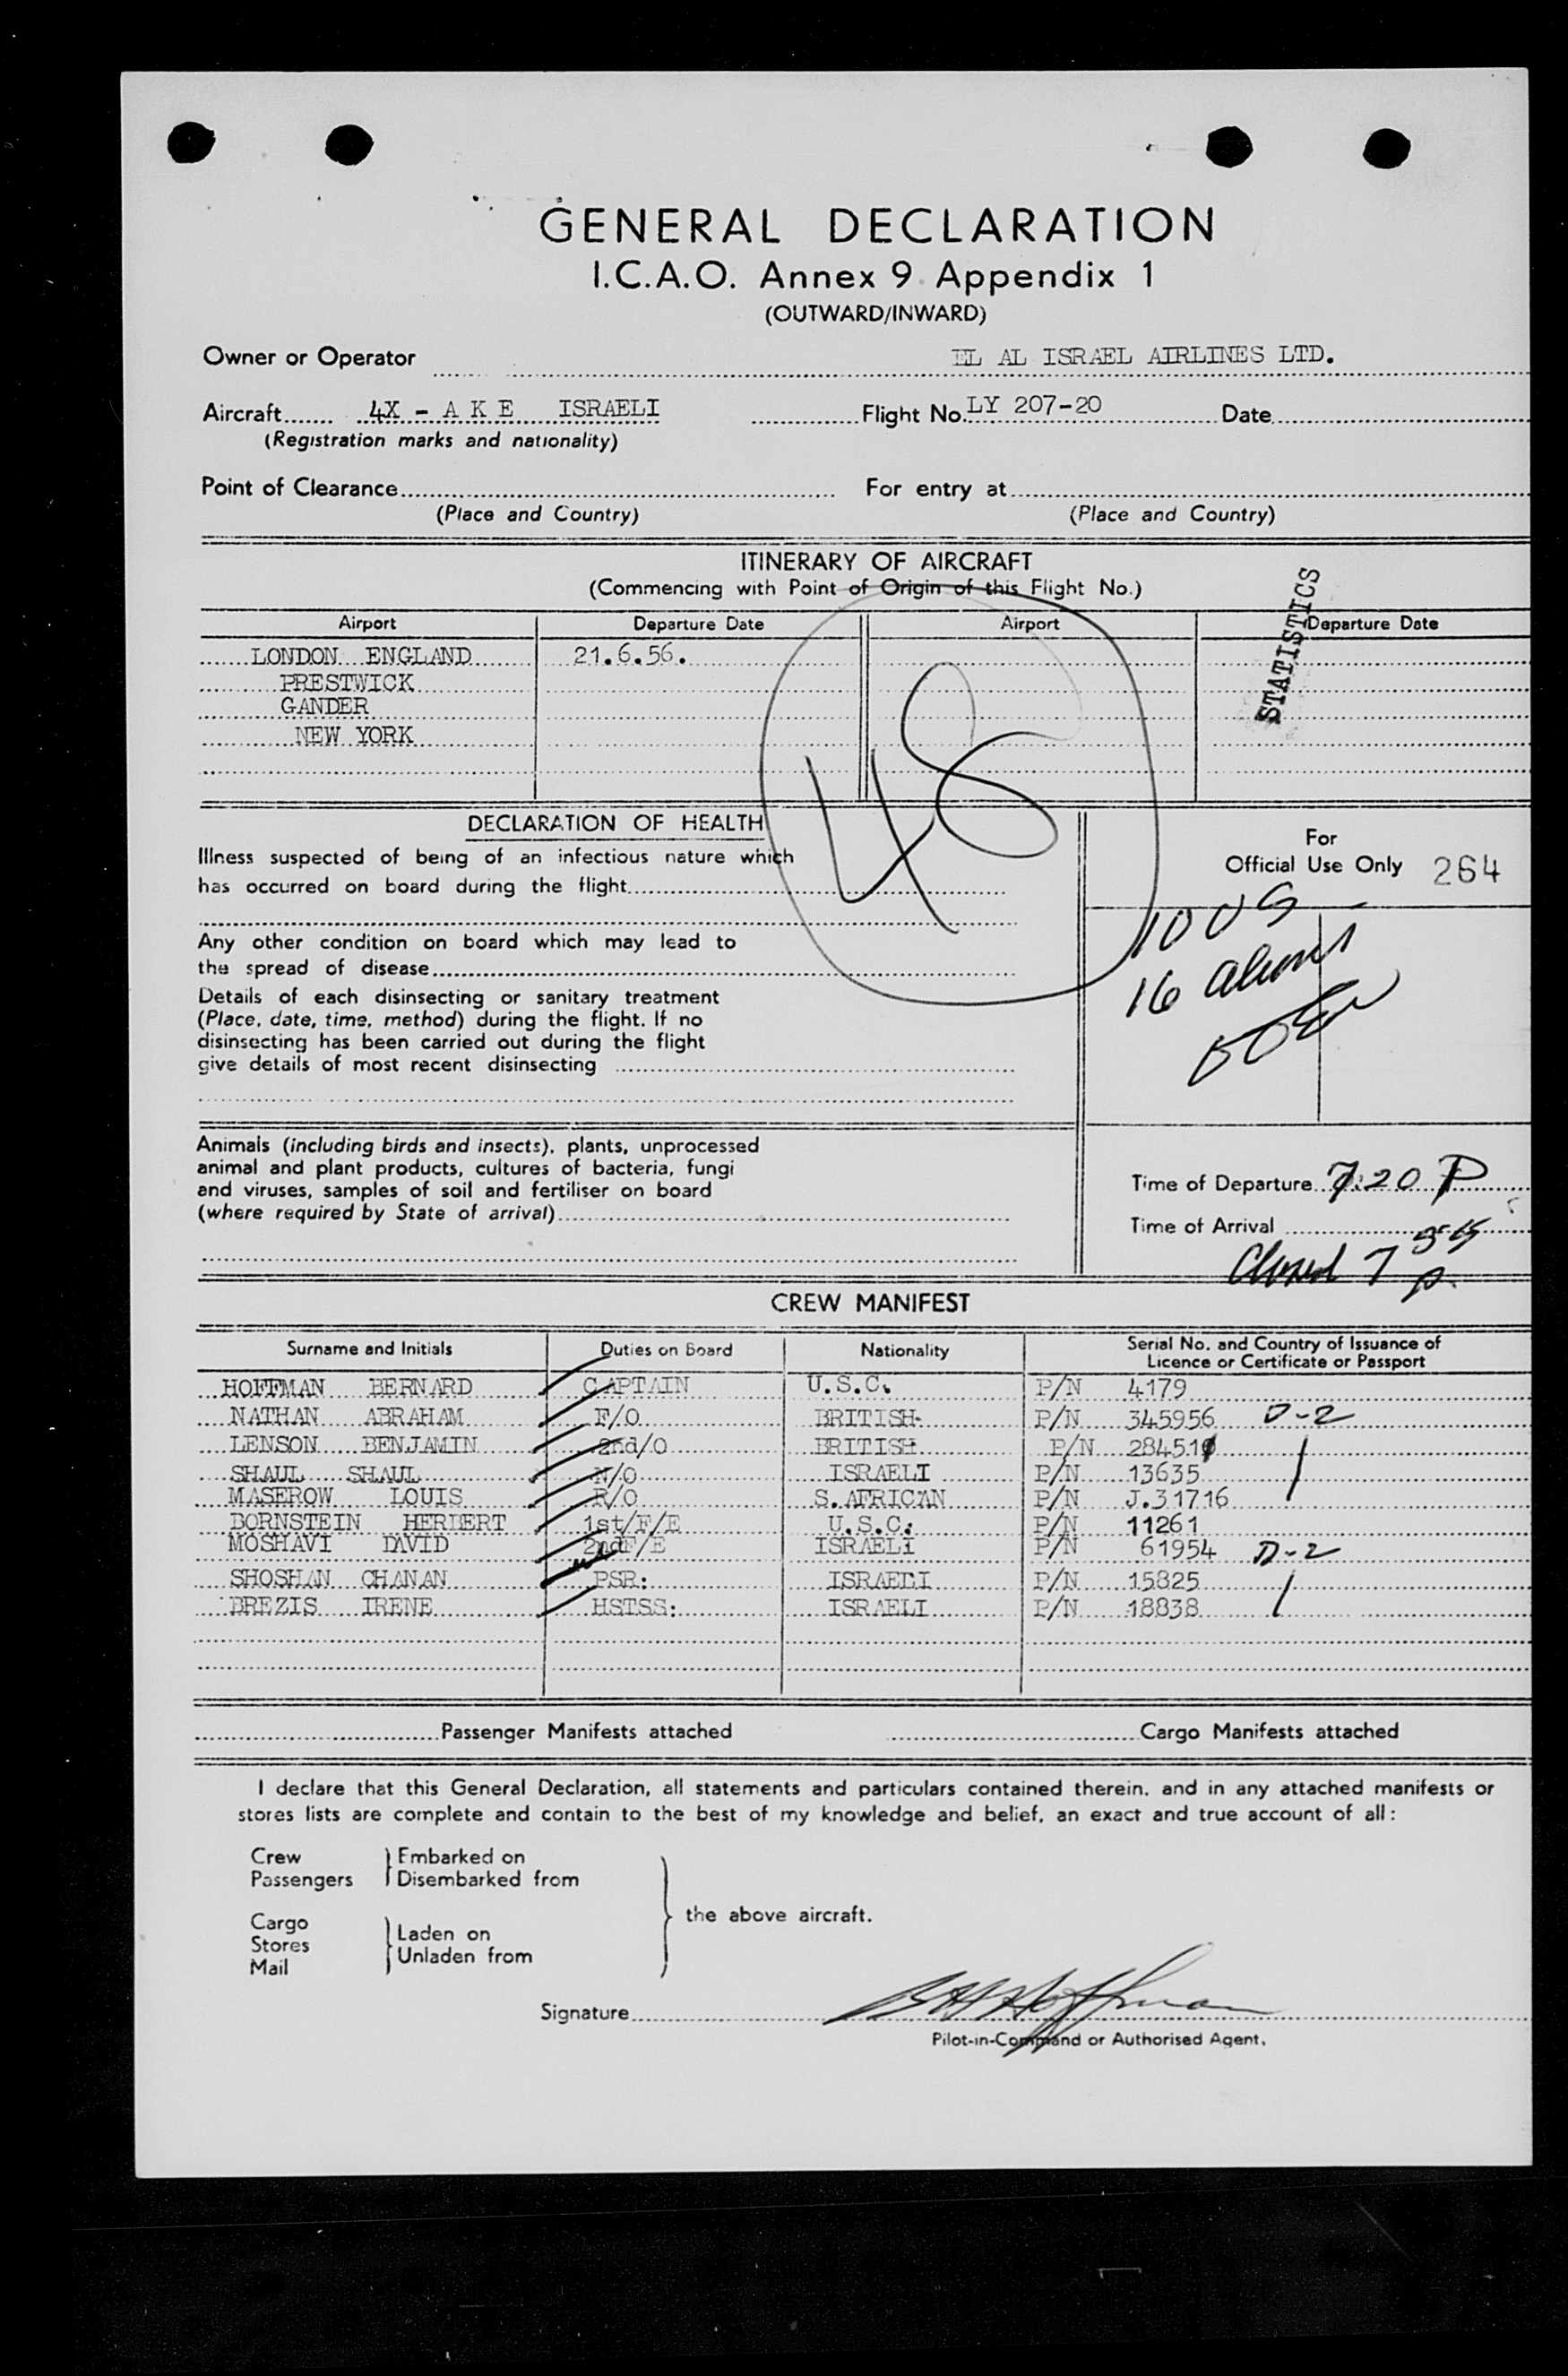 GENERAL DECLARATION
I.C.A.O. Annex 9 Appendix 1
(OUTWARD/INWARD)
Owner or Operator EL AL ISRAEL AIRLINES LTD.
Aircraft 4X - A K E ISRAELI Flight No. LY 207-20 Date
(Registration marks and nationality)
Point of Clearance For entry at
(Place and Country) (Place and Country)
ITINERARY OF AIRCRAFT
(Commencing with Point of Origin of this Flight No.)
STATISTICS
Airport Departure Date Airport Departure Date
LONDON ENGLAND 21.6.56.
PRESTWICK
GANDER
NEW YORK
DECLARATION OF HEALTH
Illness suspected of being of an infectious nature which
has occurred on board during the flight
Any other condition on board which may lead to
the spread of disease
Details of each disinsecting or sanitary treatment
(Place, date, time, method) during the flight. If no
disinsecting has been carried out during the flight
give details of most recent disinsecting
For
Official Use Only 264
10 US
16 aliens
Animals (including birds and insects), plants, unprocessed
animal and plant products, cultures of bacteria, fungi
and viruses, samples of soil and fertiliser on board
(where required by State of arrival)
Time of Departure 7:20 P
Time of Arrival
Closed 7 55 p.
CREW MANIFEST
Surname and Initials Duties on Board Nationality Serial No. and Country of Issuance of
Licence or Certificate or Passport
HOFFMAN BERNARD CAPTAIN U.S.C. P/N 4179
NATHAN ABRAHAM F/O BRITISH. P/N 345956 D-2
LENSON BENJAMIN 2nd/O BRITISH P/N 284510
SHAUL SHAUL N/O ISRAELI P/N 13635
MASEROW LOUIS R/O S.AFRICAN P/N J.31716
BORNSTEIN HERBERT 1st/F/E U.S.C: P/N 11261
MOSHAVI DAVID 2ndF/E ISRAELI P/N 61954 D-2
SHOSHAN CHANAN PSR: ISRAELI P/N 15825
BREZIS IRENE HSTSS: ISRAELI P/N 18838
Passenger Manifests attached Cargo Manifests attached
I declare that this General Declaration, all statements and particulars contained therein, and in any attached manifests or
stores lists are complete and contain to the best of my knowledge and belief, an exact and true account of all:
Crew Embarked on
Passengers Disembarked from
the above aircraft.
Cargo
Stores Laden on
Mail Unladen from
Signature B H Hoffman
Pilot-in-Command or Authorised Agent.